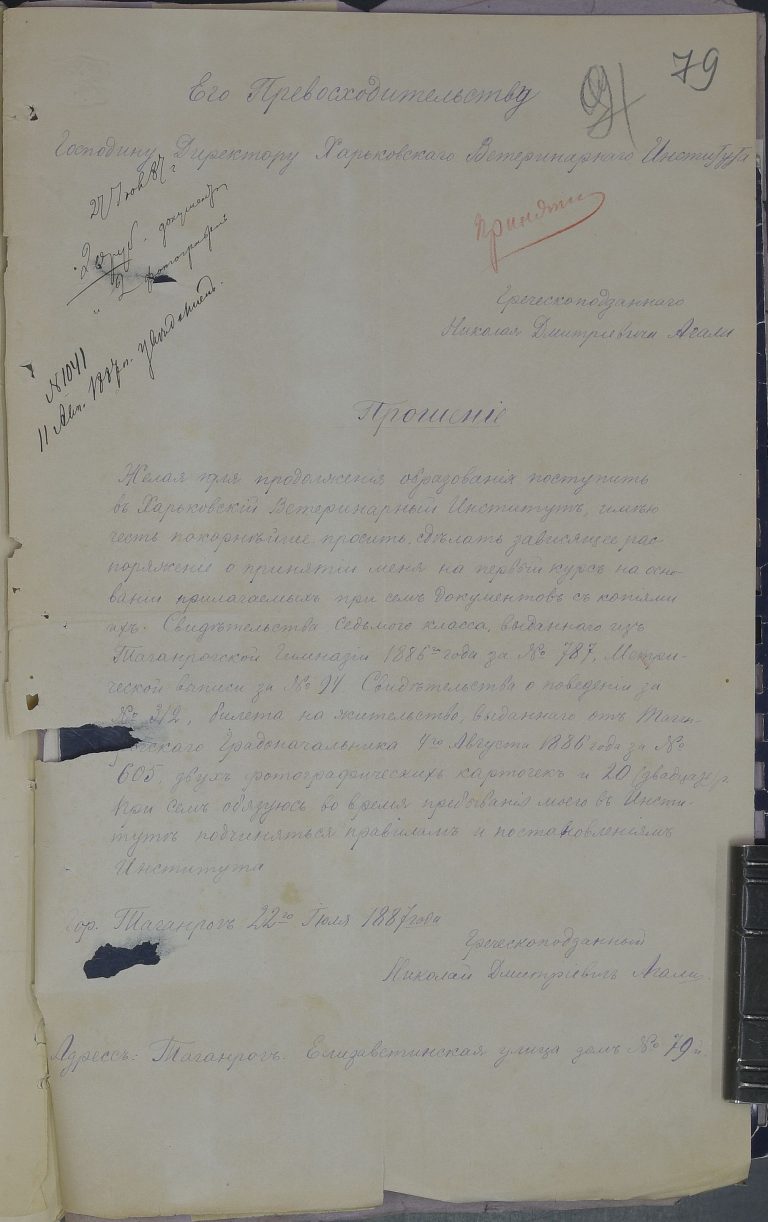 79
Его Превосходительству
Господину Директору Харьковскаго Ветеринарнаго Института
27/Іюля 87 г.
20 руб. документы
" 2 фотографіи
N 1041
11 Авг. 1887 г.
Приняти
Греческоподданнаго
Николая Дмитріевича Агали
Прошеніе
Желая для продолженія образованія поступить
въ Харьковскій Ветеринарный Институтъ, имѣю
честь покорнѣйше просить, сдѣлать зависящее рас-
поряженіе о принятіи меня на первый курсъ на осно-
ваніи прилагаемыхъ при семъ документовъ съ копіями
ихъ. Свидѣтельства седьмого класса, выданнаго изъ
Таганрогской Гимназіи 1886го года за № 787, Метри-
ческой выписи за № 91. Свидѣтельства о поведеніи за
№ 312, билета на жительство, выданнаго отъ Таган-
рогскаго Градоначальника 4го Августа 1886 года за №
605, двухъ фотографическихъ карточекъ и 20 (двадцать) р.
При семъ обязуюсь во время пребыванія моего въ Инсти-
тутѣ подчиняться правиламъ и постановленіямъ
Института
Гор. Таганрогъ 22го Іюля 1887 года
Греческоподданный
Николай Дмитріевичъ Агали.
Адрессъ: Таганрогъ. Елизаветинская улица домъ № 79й.